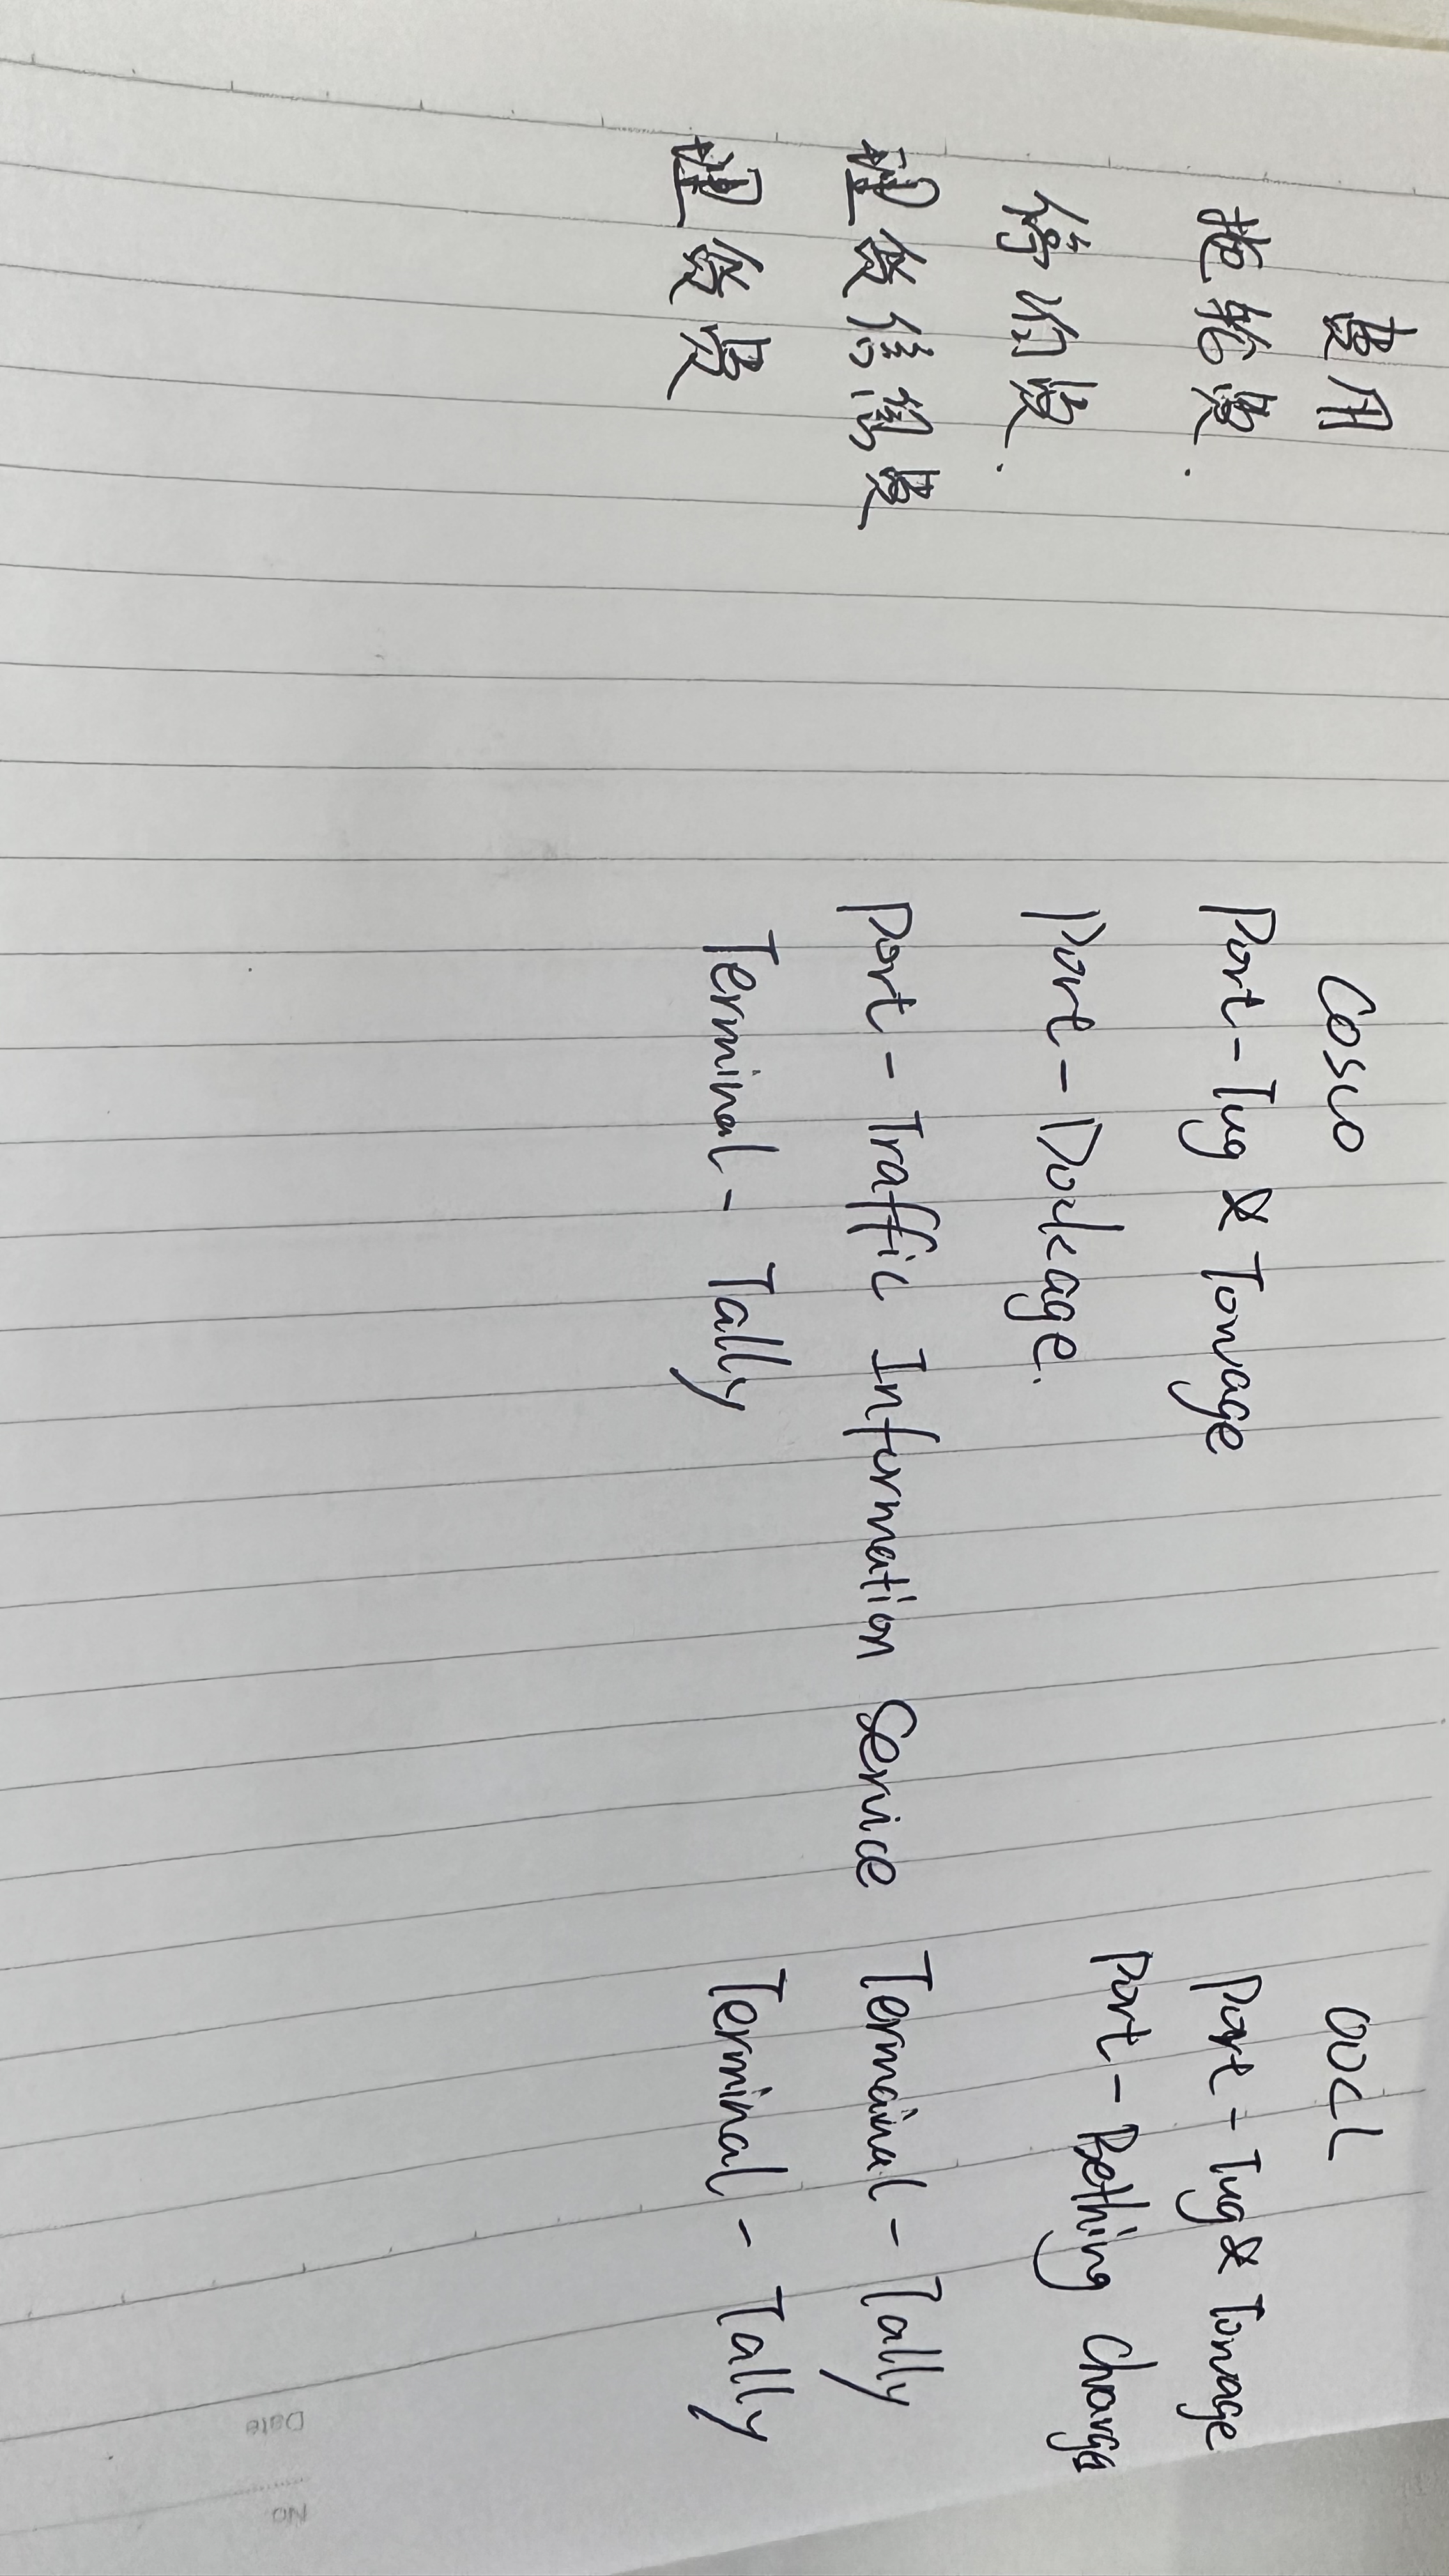 费用 Cosco OOCL
拖轮费. Port-Tug & Tonnage Port-Tug & Tonnage
停泊费. Port-Dockage. Port-Bething charge
理货信息费 Port-Traffic Information Service Termainal-Tally
理货费 Terminal-Tally Terminal-Tally
Date
No